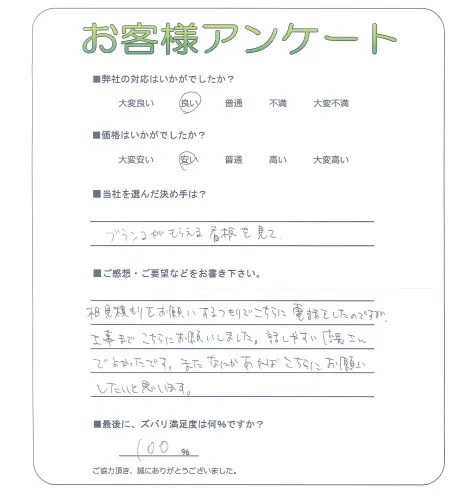 お客様アンケート
■弊社の対応はいかがでしたか？
大変良い 良い 普通 不満 大変不満
■価格はいかがでしたか？
大変安い 安い 普通 高い 大変高い
■当社を選んだ決め手は？
ブランコがもらえる看板を見て
■ご感想・ご要望などをお書き下さい。
相見積もりをお願いするつもりでこちらに電話をしたのですが、
工事までこちらにお願いしました。話しやすい
でよかったです。またなにかあればこちらにお願い
したいと思います。
■最後に、ズバリ満足度は何％ですか？
100 %
ご協力頂き、誠にありがとうございました。